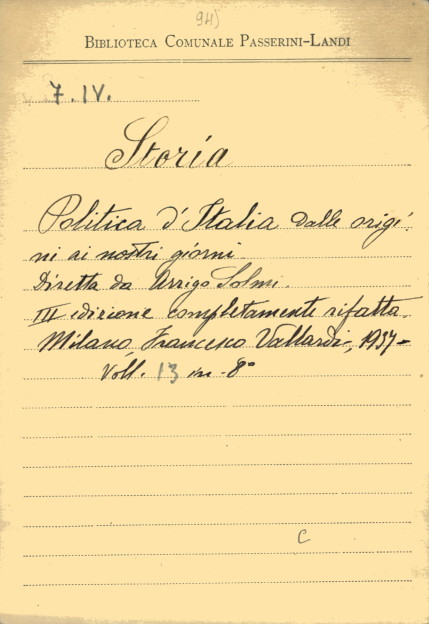 945
BIBLIOTECA COMUNALE PASSERINI-LANDI
7. IV.
Storia
Politica d'Italia dalle origi-
ni ai nostri giorni.
Diretta da Arrigo Solmi.
III edizione completamente rifatta.
Milano, Francesco Vallardi, 1937-
Voll. 13 in-8°
C